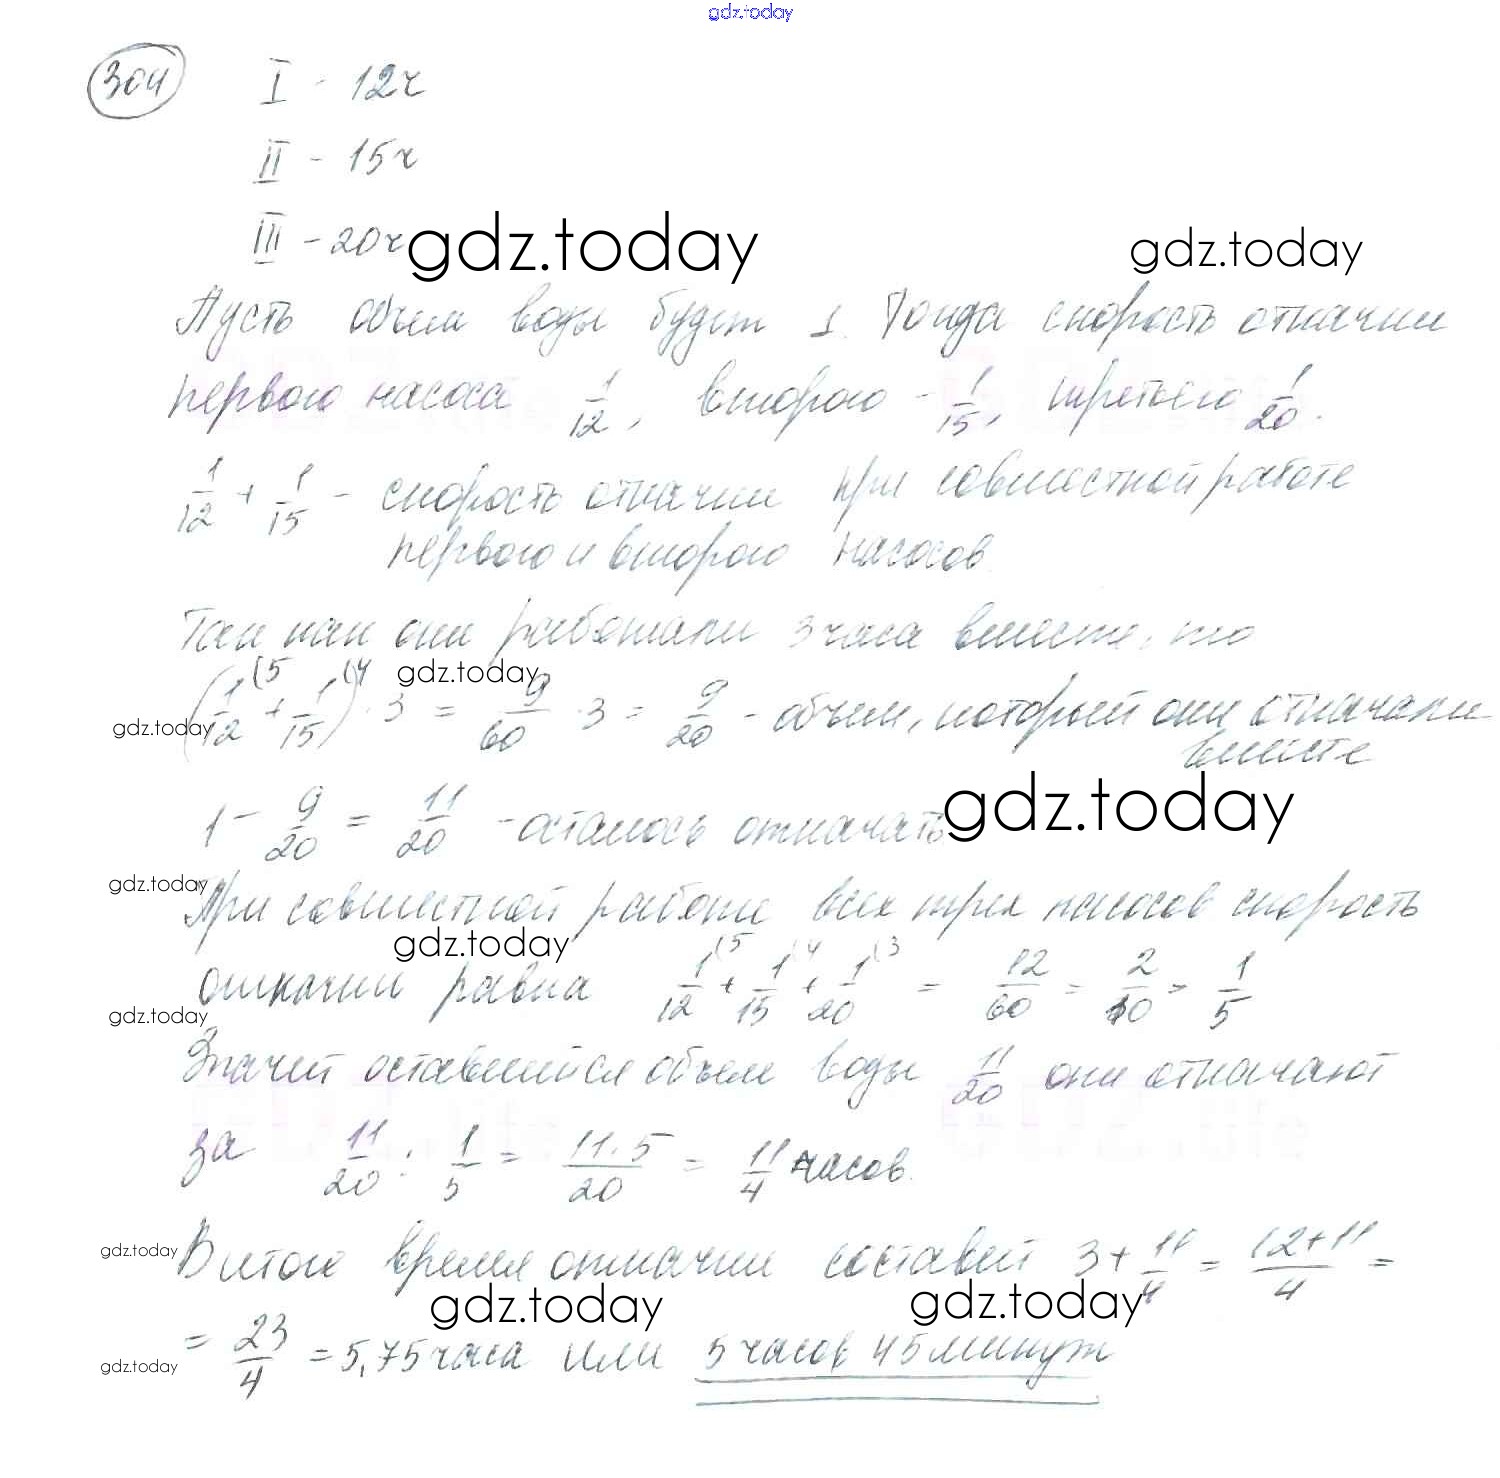 gdz.today
304 I - 12ч
II - 15ч
III - 20ч gdz.today gdz.today
Пусть объем воды будет 1. Тогда скорость откачки
первого насоса 1/12, второго - 1/15, третьего 1/20.
1/12 + 1/15 - скорость откачки при совместной работе
первого и второго насосов.
Так как они работали 3 часа вместе, то
gdz.today
(1/12 (5 + 1/15 (4) · 3 = 9/60 · 3 = 9/20 - объем, который они откачали
gdz.today
вместе
1 - 9/20 = 11/20 - осталось откачать gdz.today
gdz.today
При совместной работе всех трех насосов скорость
gdz.today
откачки равна 1/12 (5 + 1/15 (4 + 1/20 (3 = 12/60 = 2/10 = 1/5
gdz.today
Значит оставшийся объем воды 11/20 они откачают
за 11/20 : 1/5 = 11·5/20 = 11/4 часов.
gdz.today
В итоге время откачки составит 3 + 11/4 = 12+11/4 =
gdz.today gdz.today
= 23/4 = 5,75 часа или 5 часов 45 минут
gdz.today